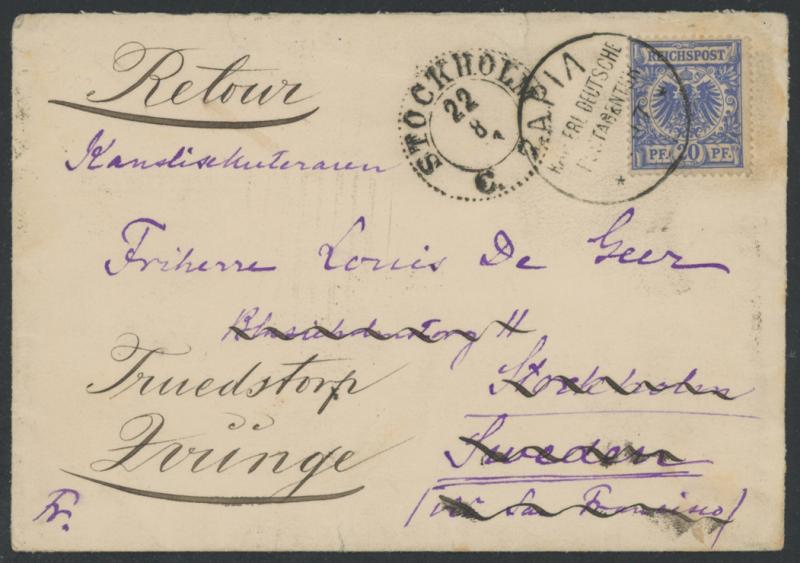 Retour
STOCKHOLM
22
8
C.
APIA
KAISERL. DEUTSCHE
POSTAGENTUR
REICHSPOST
PF. 20 PF.
Friherre Louis De Geer
11
Truedstorp
Stockholm
Qvinge
Sweden
Fr.
(via San Francisco)